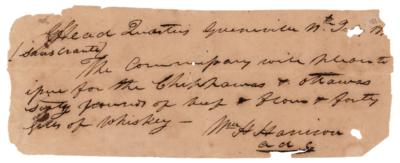 Head Quarters Greeneville
The Commissary will please to
issue for the Chippawas & Ottawas
sixty pounds of beef & flour & forty
of Whiskey —
Wm H Harrison
a d C